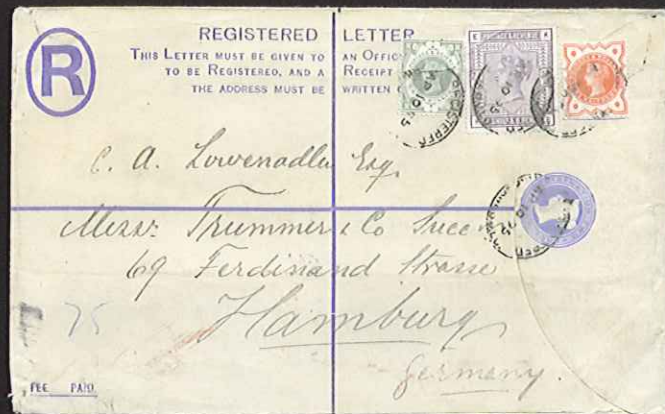 R
REGISTERED LETTER
THIS LETTER MUST BE GIVEN TO AN OFFIC
TO BE REGISTERED, AND A RECEIPT
THE ADDRESS MUST BE WRITTEN
POSTAGE & REVENUE
REGISTERED
C. A. Lowenadler Esq.
Messrs. Trummer & Co Succ
69 Ferdinand Strasse
Hamburg
Germany.
75
FEE PAID.